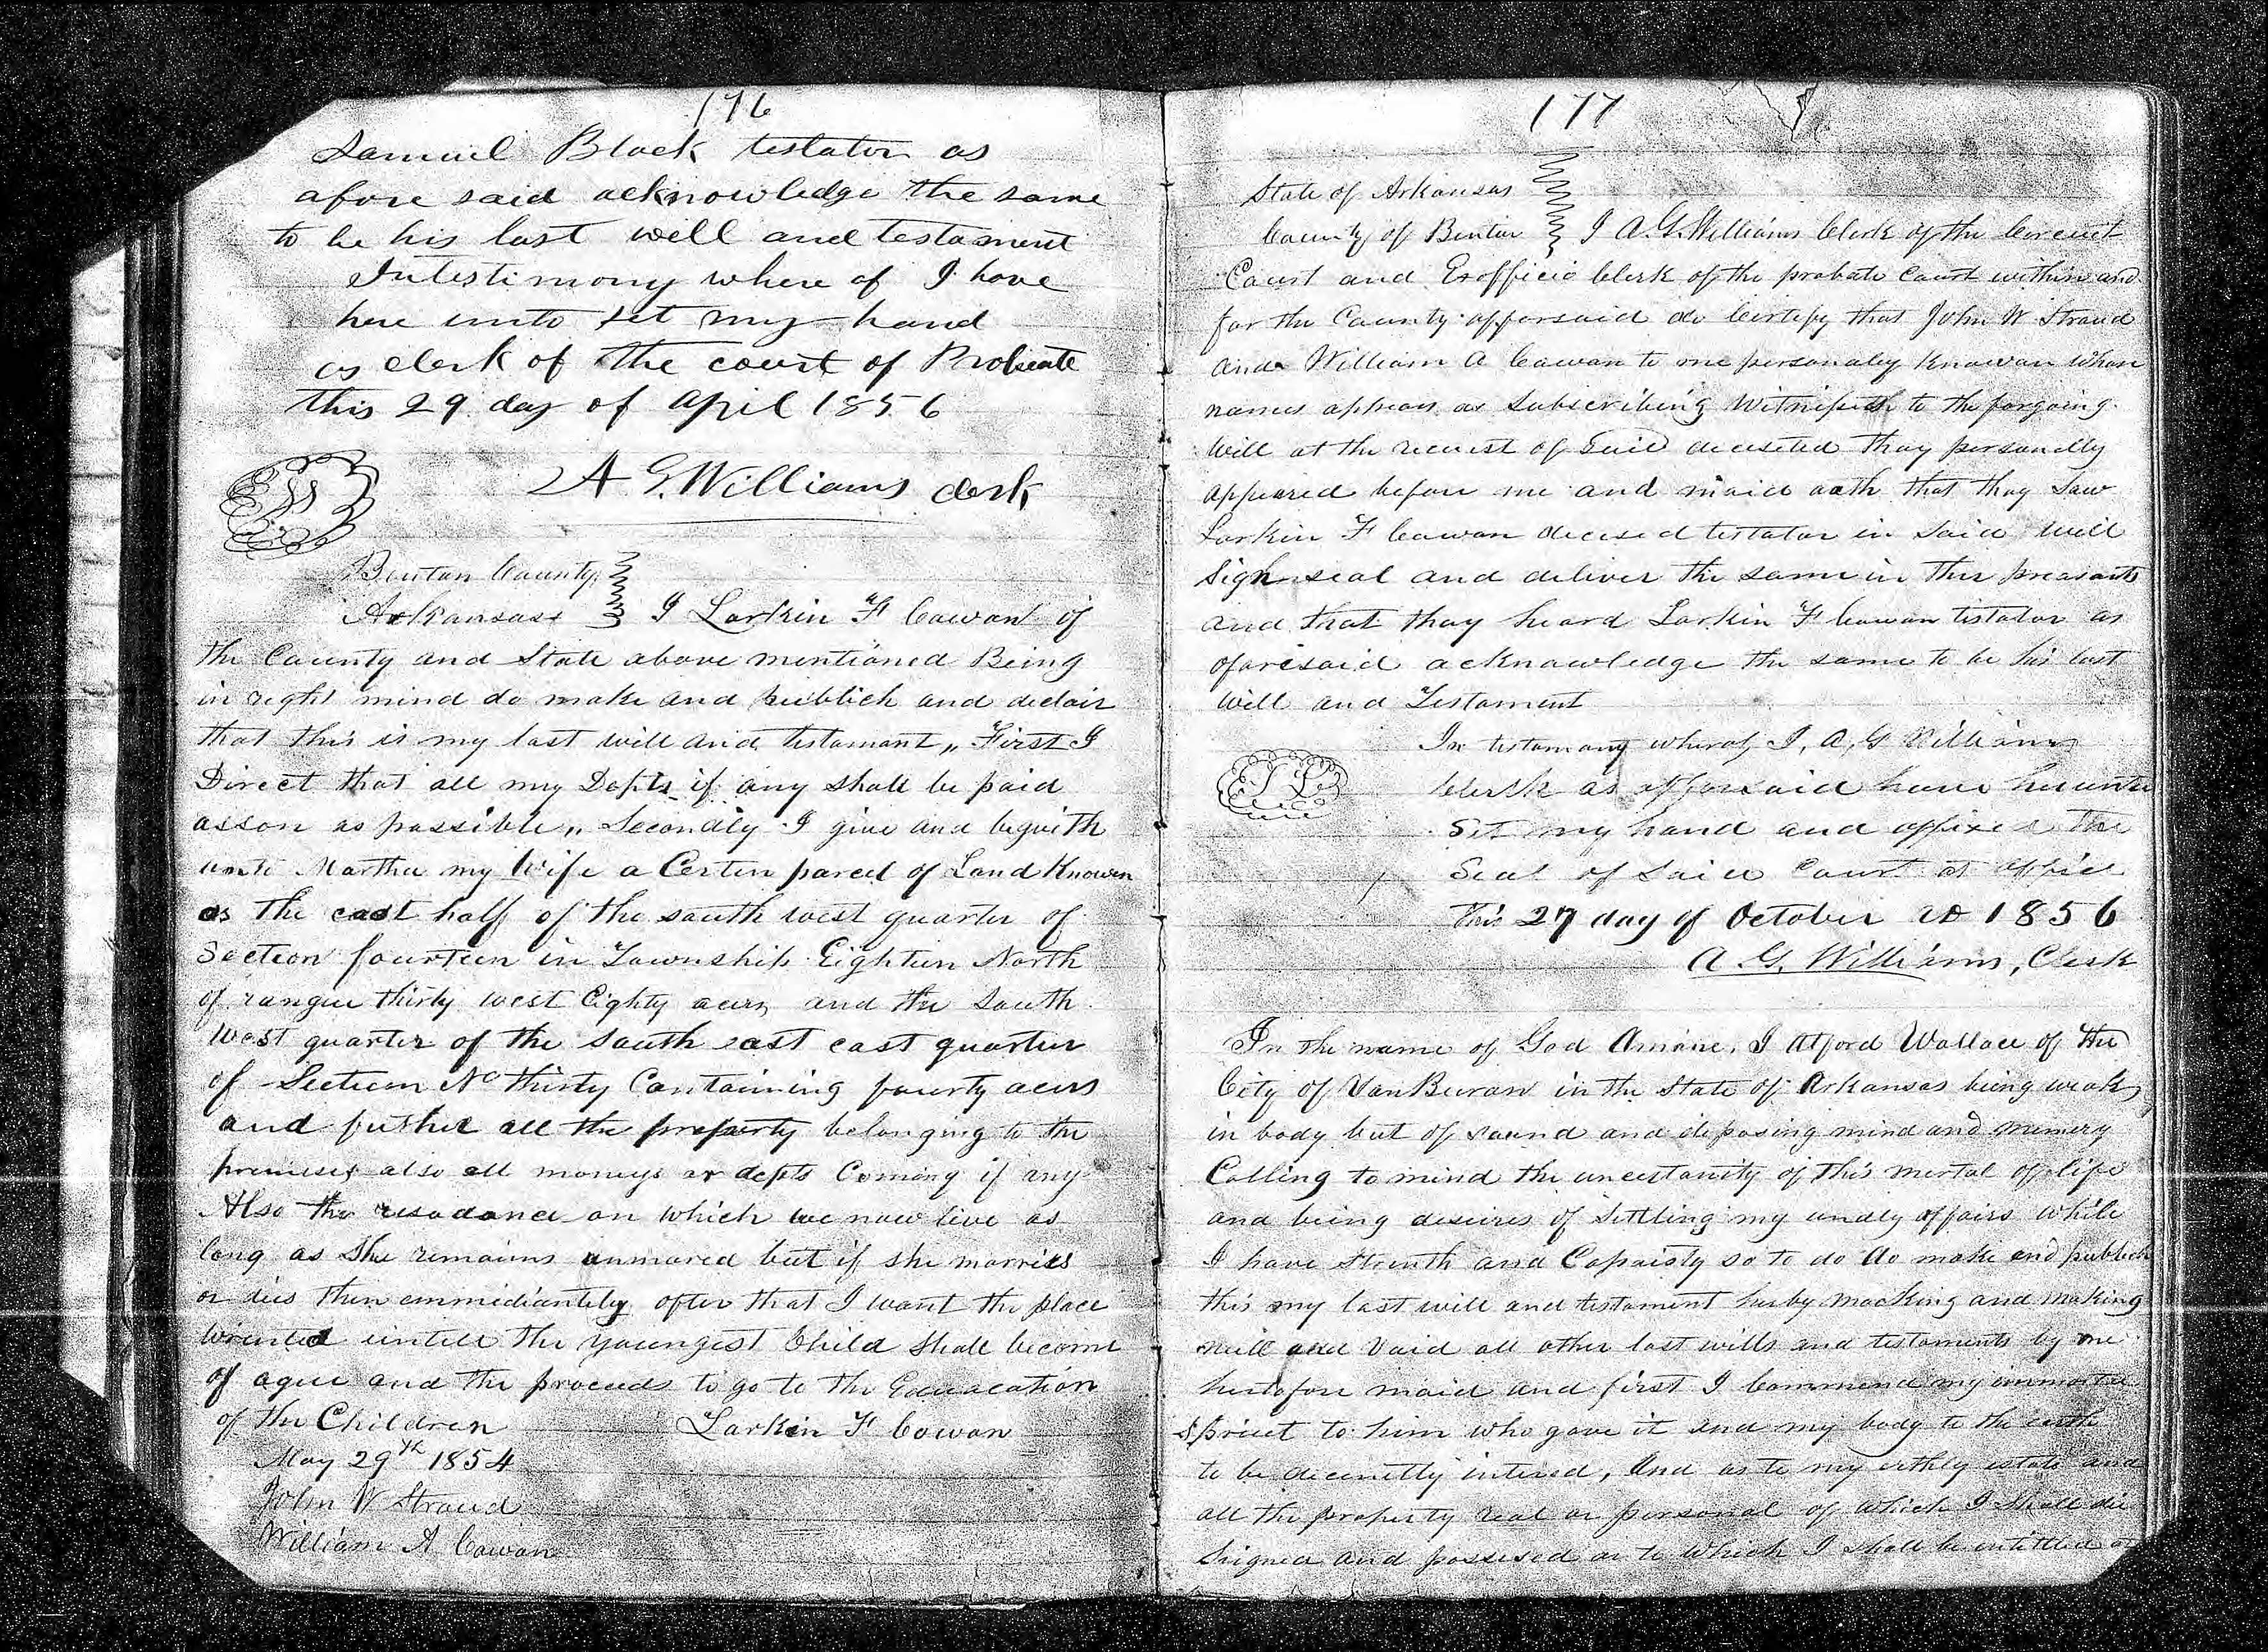 176
Samuel Black testator as
afore said acknowledge the same
to be his last will and testament
Intestimony where of I have
here unto set my hand
as clerk of the court of Probeate
this 29 day of April 1856
A. G. Williams clerk
Benton County
Arkansas I Larkin F Cowan of
the County and State above mentioned Being
in right mind do make and publich and declair
that this is my last will and testamant,, First I
Direct that all my Depts if any shall be paid
asson as possible,, Secondly I give and bequith
unto Martha my Wife a Certen parcel of Land Knowen
as the east half of the south west quarter of
Section fourteen in Township Eighteen North
of rangue thirty west Eighty acurs and the South
West quarter of the south east east quarter
of Section No thirty Containing fourty acurs
and futher all the property belonging to the
premises also all moneys or depts Coming if any
Also the resadance on which we now live as
long as She remains unmared but if she marries
or dies then emmediantely after that I want the place
wrented untill the youngest Child shall become
of ague and the proceeds to go to the Educacation
of the Children Larkin F Cowan
May 29th 1854
John W Stroud
William A Cowan
177
State of Arkansas
County of Benton I A. G. Williams Clerk of the Corcuit
Court and Exofficio Clerk of the probate Court within and
for the County afforsaid do Certify that John W Stroud
and William A Cowan to me personaley Knowan whose
names appears as Subscribeing Witnisseth to the forgoing
will at the recuest of Said deceseted thay personelly
appeared before me and maid oath that thay Saw
Larkin F Cowan decised testator in Said will
Sign seal and deliver the same in ther preasants
and that thay heard Larkin F Cowan tistator as
aforesaid acknawledge the same to be his last
will and Testament
In testamony wherof I, A, G Williams
Clerk as afforsaid have herunto
Set my hand and affixed the
Seal of Said Court at office
this 27 day of October AD 1856
A. G. Williams, Clerk
In the name of God Amane. I Alford Wallace of the
City of VanBuran in the State of Arkansas being weak
in body but of sound and disposing mind and memery
Calling to mind the uncertanity of this mortal of life
and being desires of Settling my undly affairs while
I have Strenth and Capaisty so to do do make and publich
this my last will and testament hurby macking and making
null and Vaid all other last wills and testaments by me
hertofore maid and first I Commend my immortal
Spriret to him who gave it and my body to the earth
to be decentlly intered, And as to my erthly estate and
all the property real or personal of which I Shall die
Seigned and possesed or to Which I shall be intittled at